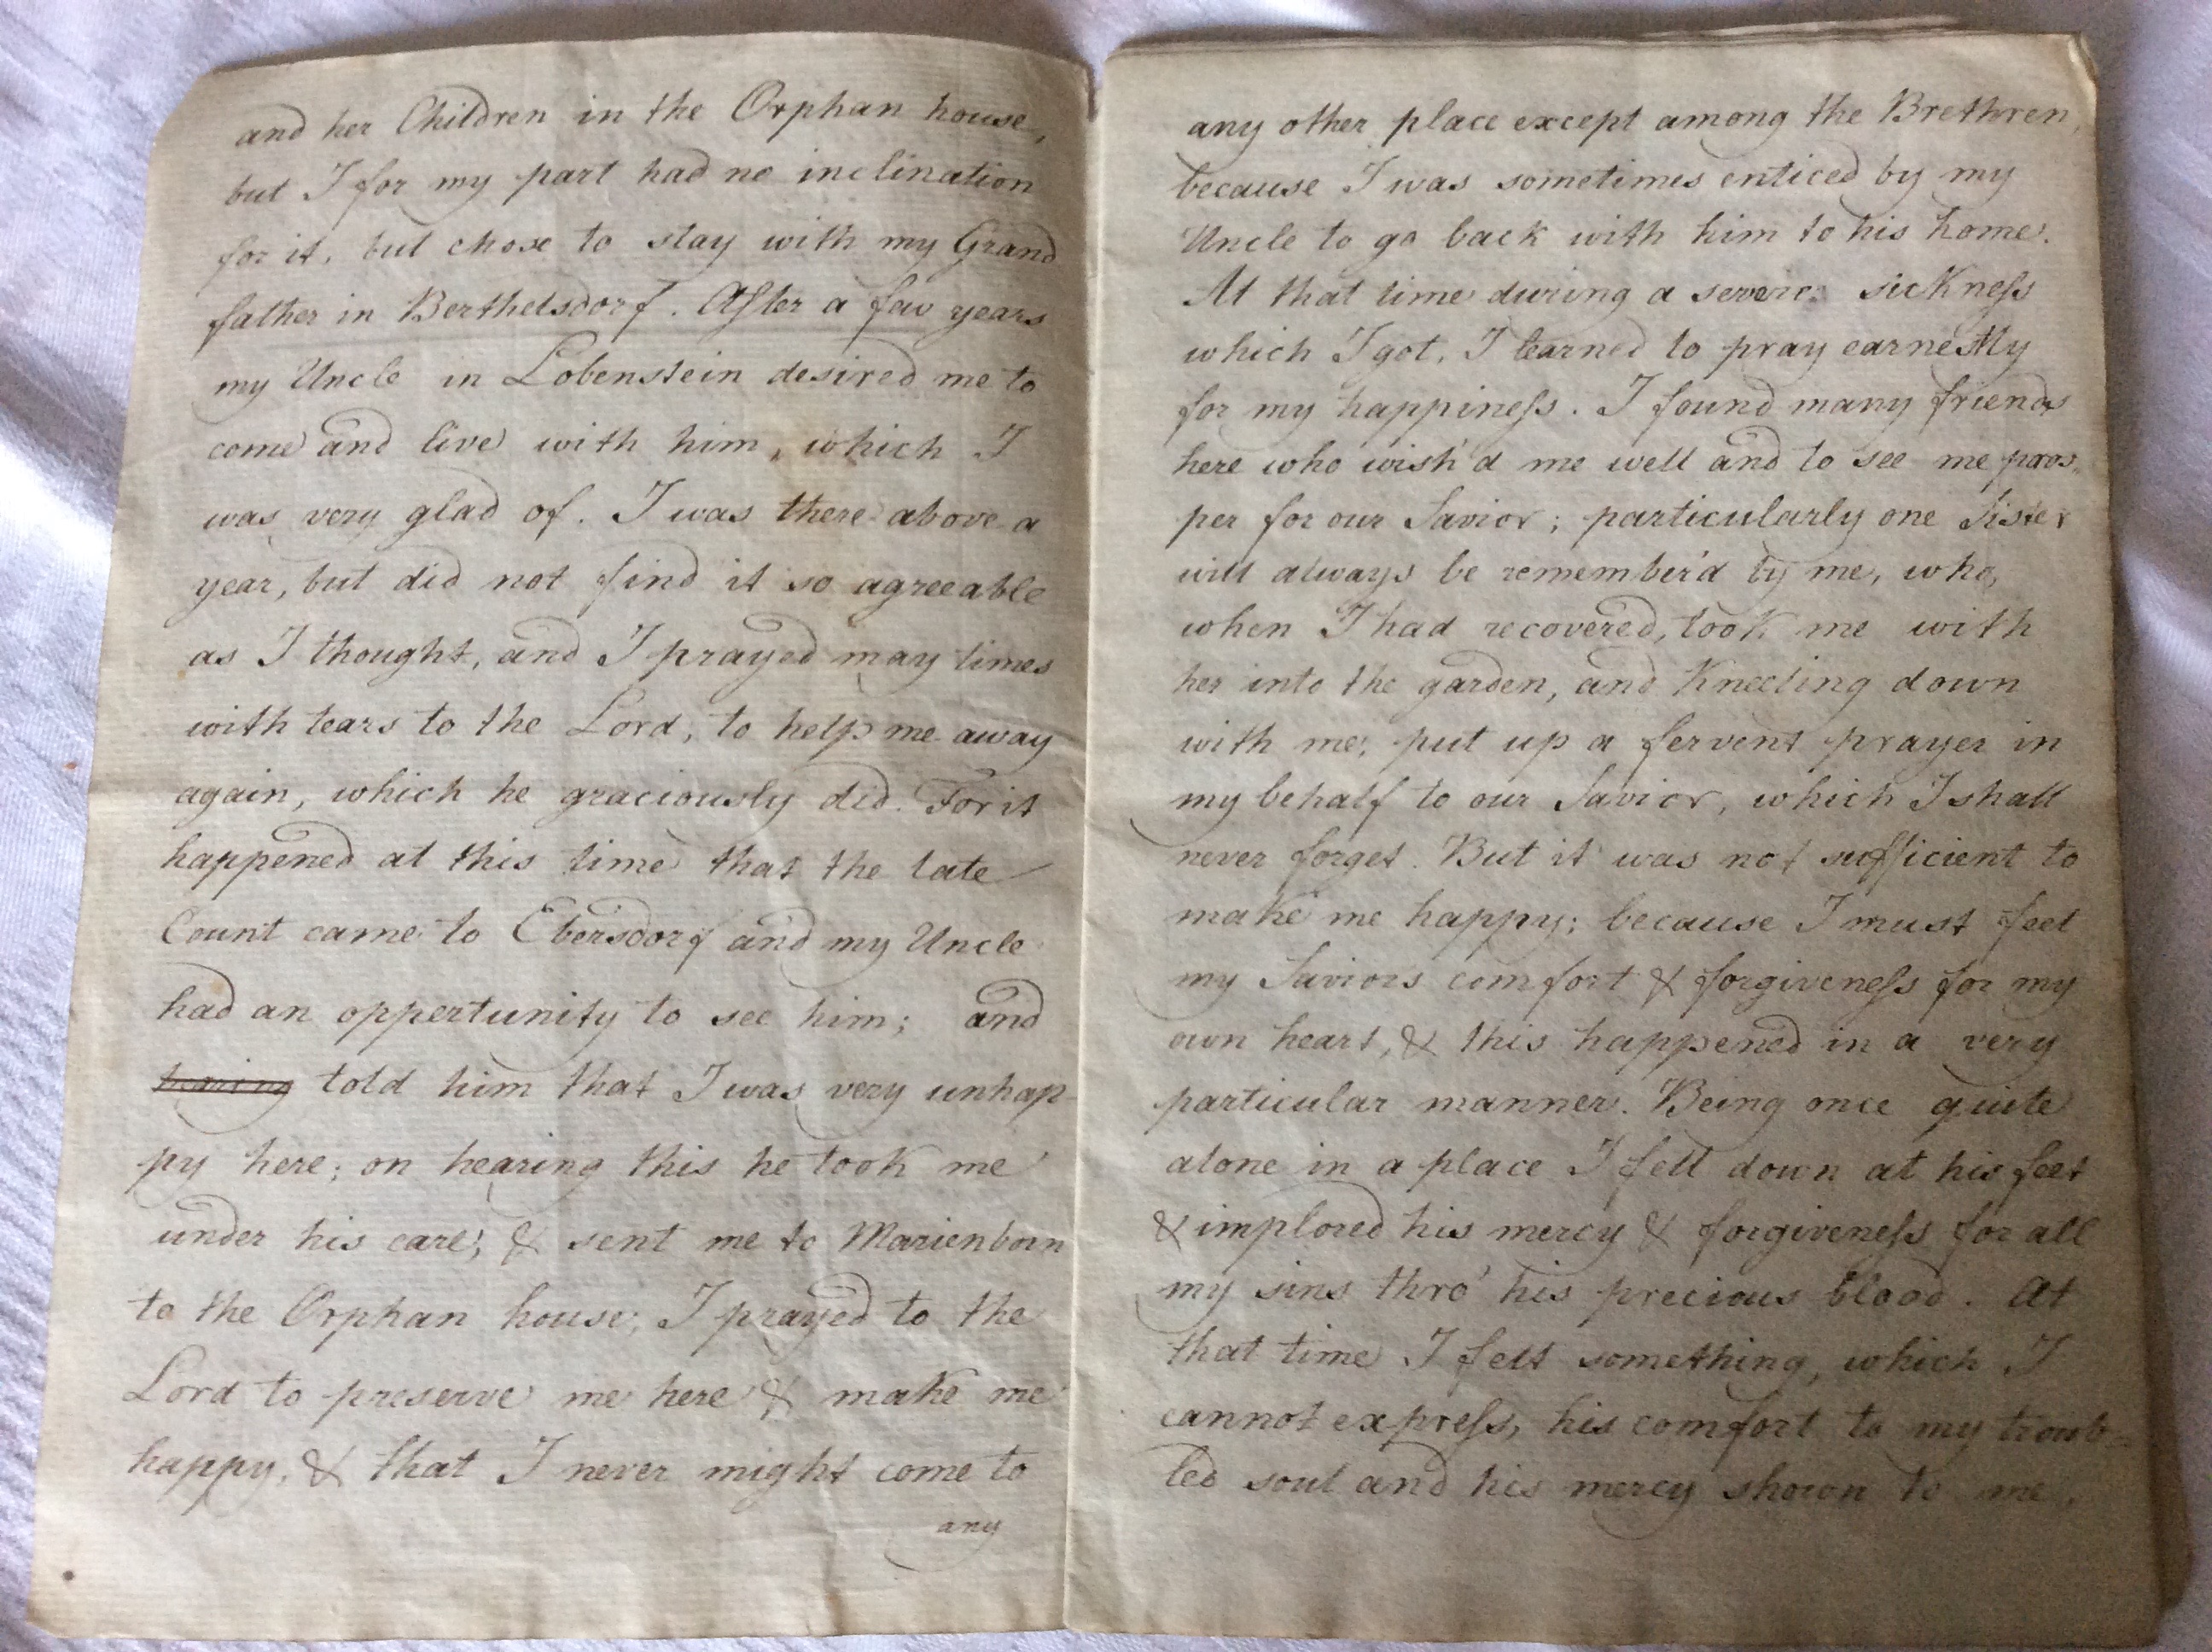 and her Children in the Orphan house,
but I for my part had no inclination
for it, but chose to stay with my Grand
father in Berthelsdorf. After a few years
my Uncle in Lobenstein desired me to
come and live with him, which I
was very glad of. I was there above a
year, but did not find it so agreeable
as I thought, and I prayed may times
with tears to the Lord, to help me away
again, which he graciously did. For it
happened at this time that the late
Count came to Ebersdorf and my Uncle
had an oppertunity to see him; and
having told him that I was very unhap-
py here; on hearing this he took me
under his care; & sent me to Marienborn
to the Orphan house; I prayed to the
Lord to preserve me here & make me
happy, & that I never might come to
any
any other place except among the Brethren,
because I was sometimes enticed by my
Uncle to go back with him to his home.
At that time during a severe sickneſs
which I got, I learned to pray earnestly
for my happineſs. I found many friends
here who wish'd me well and to see me pros-
per for our Savior; particularly one Sister
will always be remember'd by me, who,
when I had recovered, took me with
her into the garden, and Kneeling down
with me, put up a fervent prayer in
my behalf to our Savior, which I shall
never forget. But it was not sufficient to
make me happy; because I must feel
my Saviors comfort & forgiveneſs for my
own heart, & this happened in a very
particular manner. Being once quite
alone in a place I fell down at his feet
& implored his mercy & forgiveneſs for all
my sins thro' his precious blood. At
that time I felt something, which I
cannot expreſs, his comfort to my troub=
led soul and his mercy shown to me.